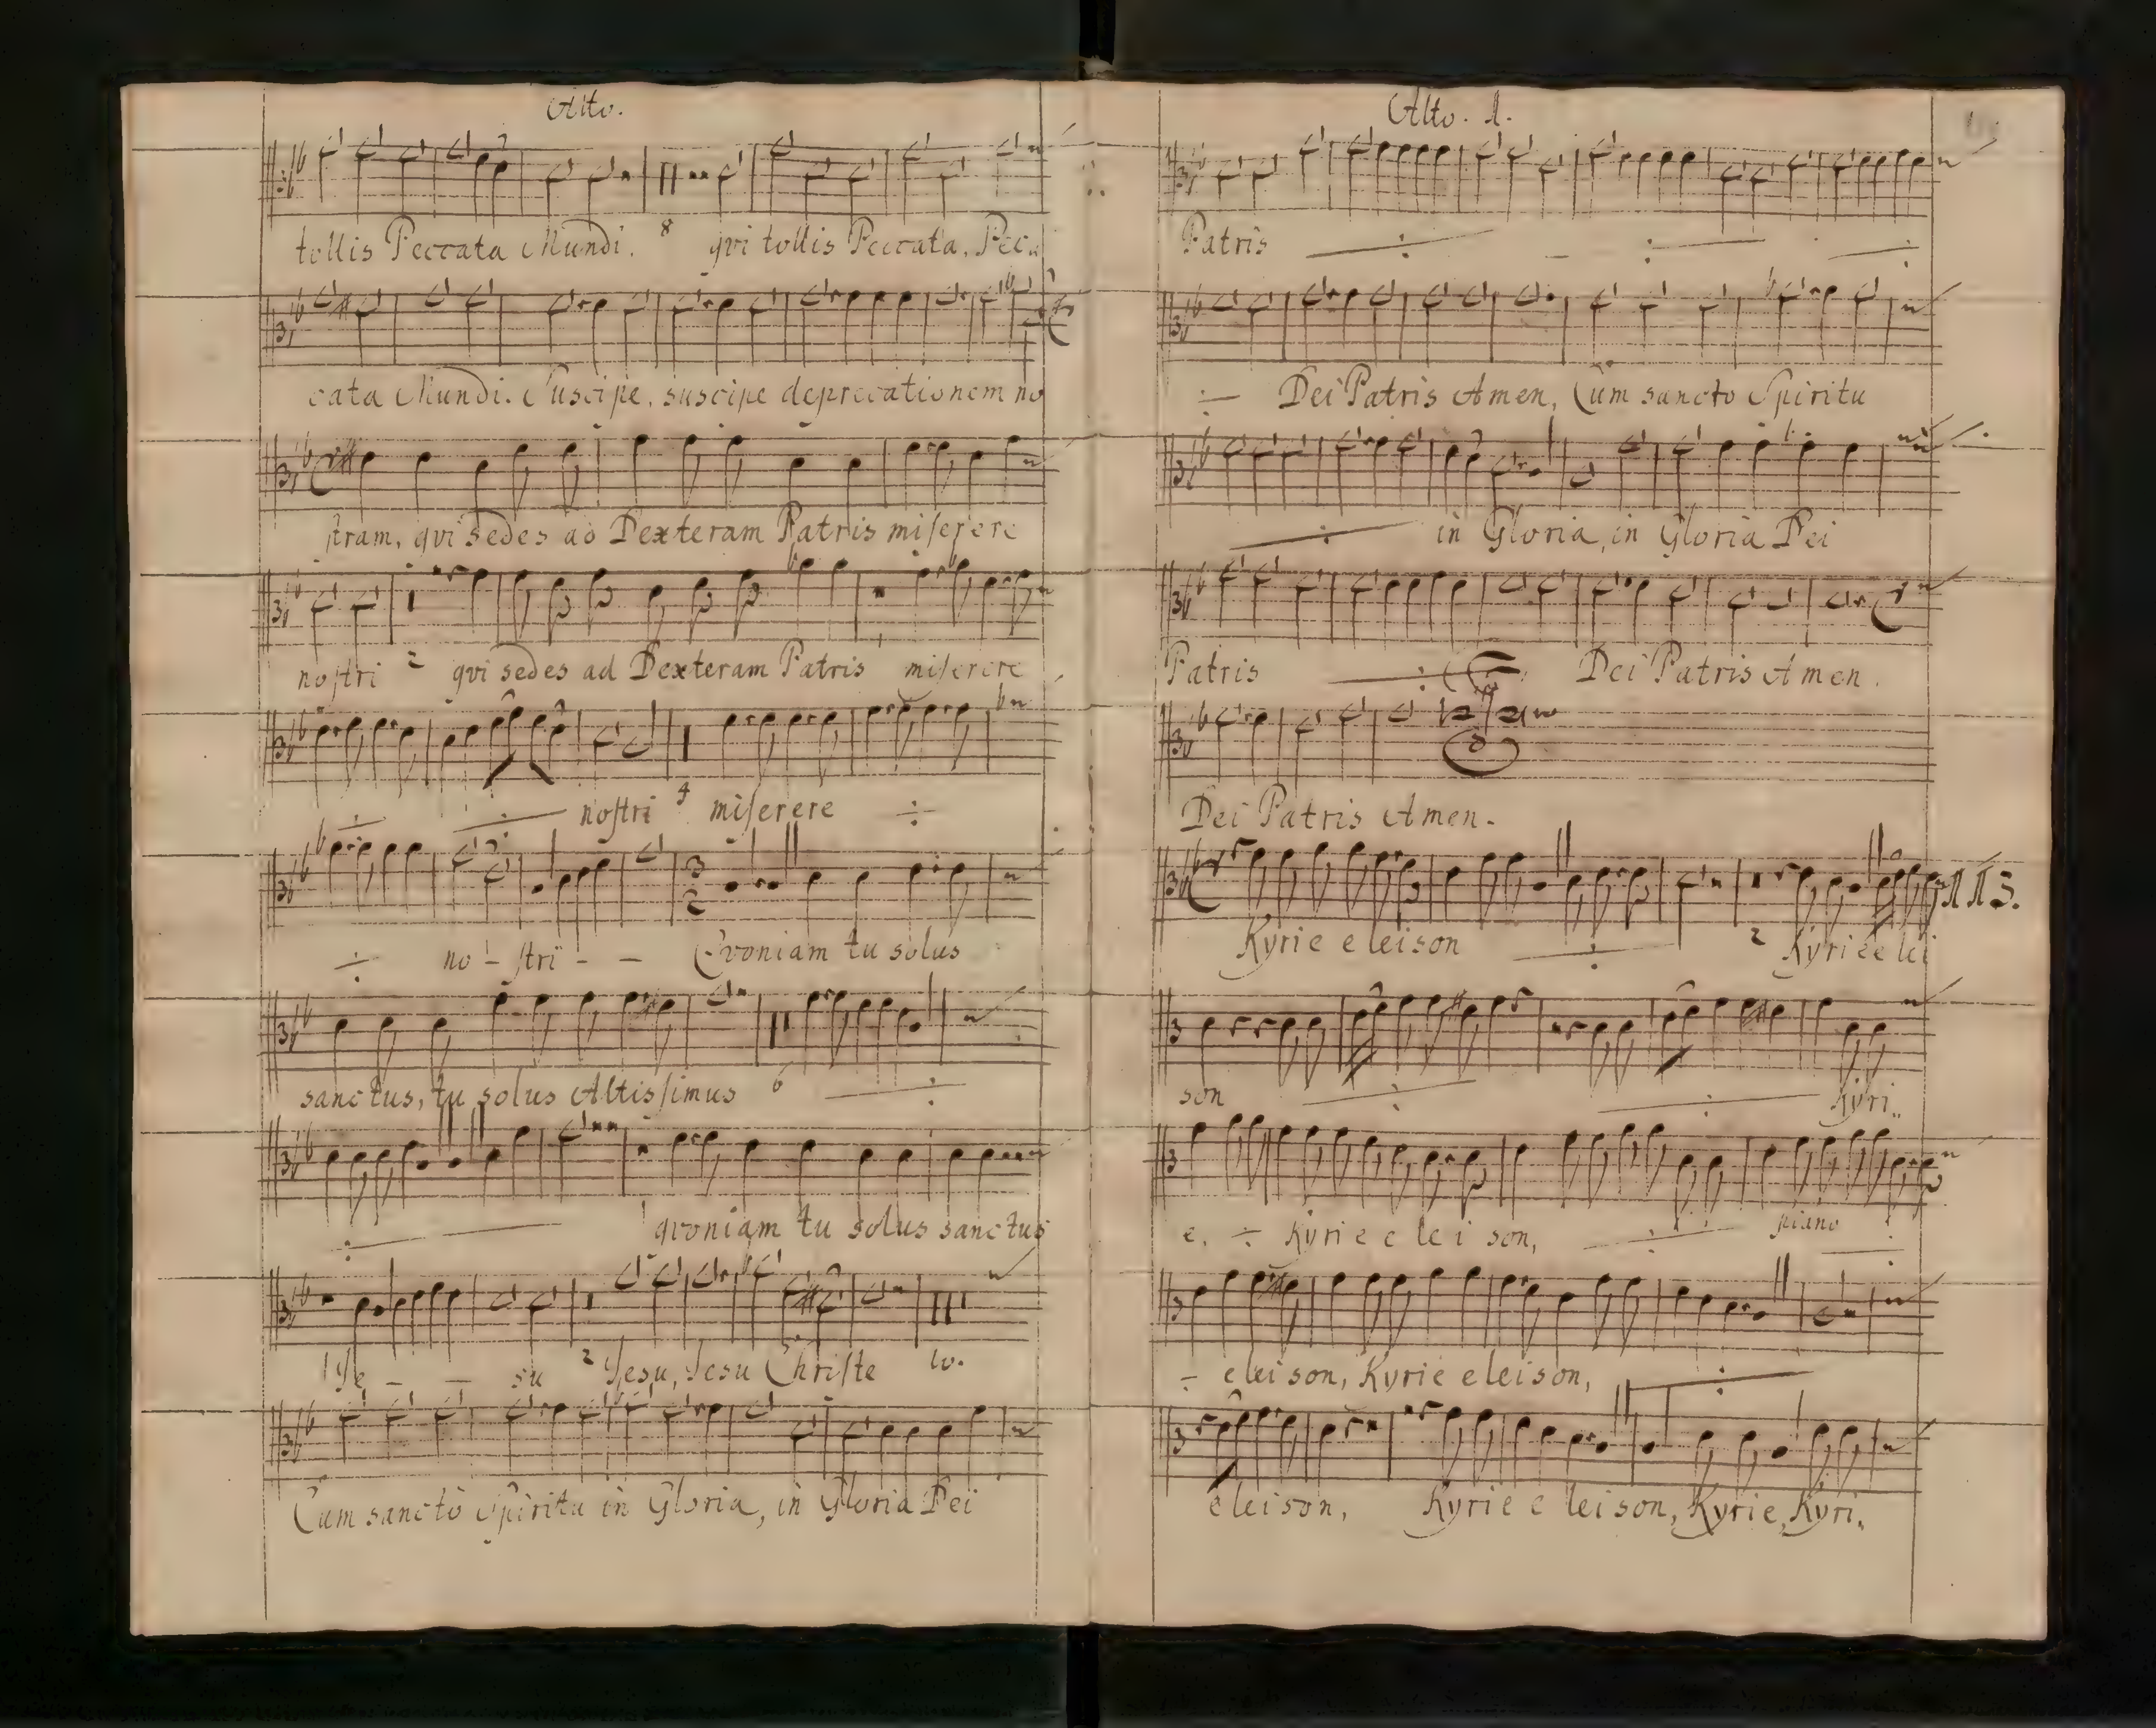 Alto.
tollis Peccata Mundi. 8 qvi tollis Peccata, Pec
cata Mundi. Suscipe, suscipe deprecationem no
stram, qvi sedes ad Dexteram Patris miserere
nostri 2 qvi sedes ad Dexteram Patris miserere
÷ ÷ nostri 4 miserere ÷
3
2
÷ no - stri - - Qvoniam tu solus
sanctus, tu solus Altissimus 6 ÷
÷ qvoniam tu solus sanctus
1 Je - - su 2 Jesu, Jesu Christe 10.
Cum sancto Spiritu in Gloria, in Gloria Dei
Alto. 1.
Patris ÷ ÷ ÷
÷ Dei Patris Amen, Cum sancto Spiritu
÷ in Gloria, in Gloria Dei
Patris ÷ Dei Patris Amen.
Dei Patris Amen.
Kyrie eleison ÷ 2 Kyrie e lei
son ÷ ÷ Kyri..
e. ÷ Kyrie e lei son, ÷ piano
÷ eleison, Kyrie eleison, ÷
eleison, Kyrie e leison, Kyrie, Kyri..